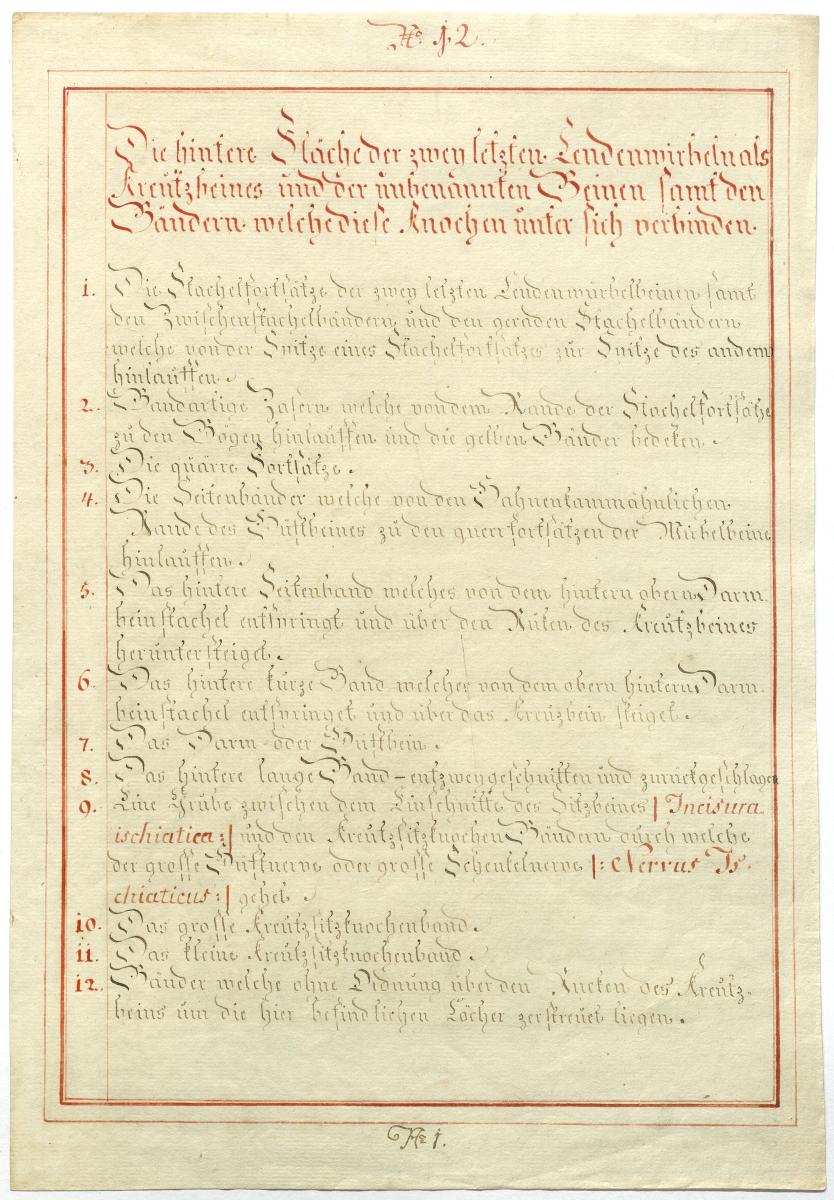 No. 12.
Die hintere Fläche der zwey letzten Lendenwirbeln als
Kreutzbeines und der unbenannten Beinen samt den
Bändern welche diese Knochen unter sich verbinden.
1. Die Stachelfortsätze der zwey letzten Lendenwürbelbeinen samt
den Zwischenstachelbändern, und den geraden Stachelbändern
welche von der Spitze eines Stachelfortsatzes zur Spitze des andern
hinlauffen.
2. Bandartige Fasern welche von dem Rande der Stachelfortsätze
zu den Bögen hinlauffen und die gelben Bänder bedeken.
3. Die quärre Fortsätze.
4. Die Seitenbänder welche von den Hahnenkammähnlichen
Rande des Hüftbeines zu den querrfortsätzen der Wirbelbeine
hinlauffen.
5. Das hintere Seitenband welches von dem hintern obern Darm-
beinstachel entspringt und über den Rüken des Kreutzbeines
heruntersteiget.
6. Das hintere kurze Band welches von dem obern hintern Darm-
beinstachel entspringet und über das Kreuzbein steiget.
7. Das Darm- oder Hüftbein.
8. Das hintere lange Band – entzweygeschnitten und zurückgeschlagen
9. Eine Grube zwischen dem Einschnitte des Sitzbeines |: Incisura
ischiatica :| und den Kreutzsitzknochen Bändern durch welche
der grosse Hüftnerve oder grosse Schenkelnerve |: Nervus Is-
chiaticus :| gehet.
10. Das grosse Kreutzsitzknochenband.
11. Das kleine Kreutzsitzknochenband.
12. Bänder welche ohne Ordnung über den Rucken des Kreutz-
beins um die hier befindlichen Löcher zerstreuet liegen.
No. 1.